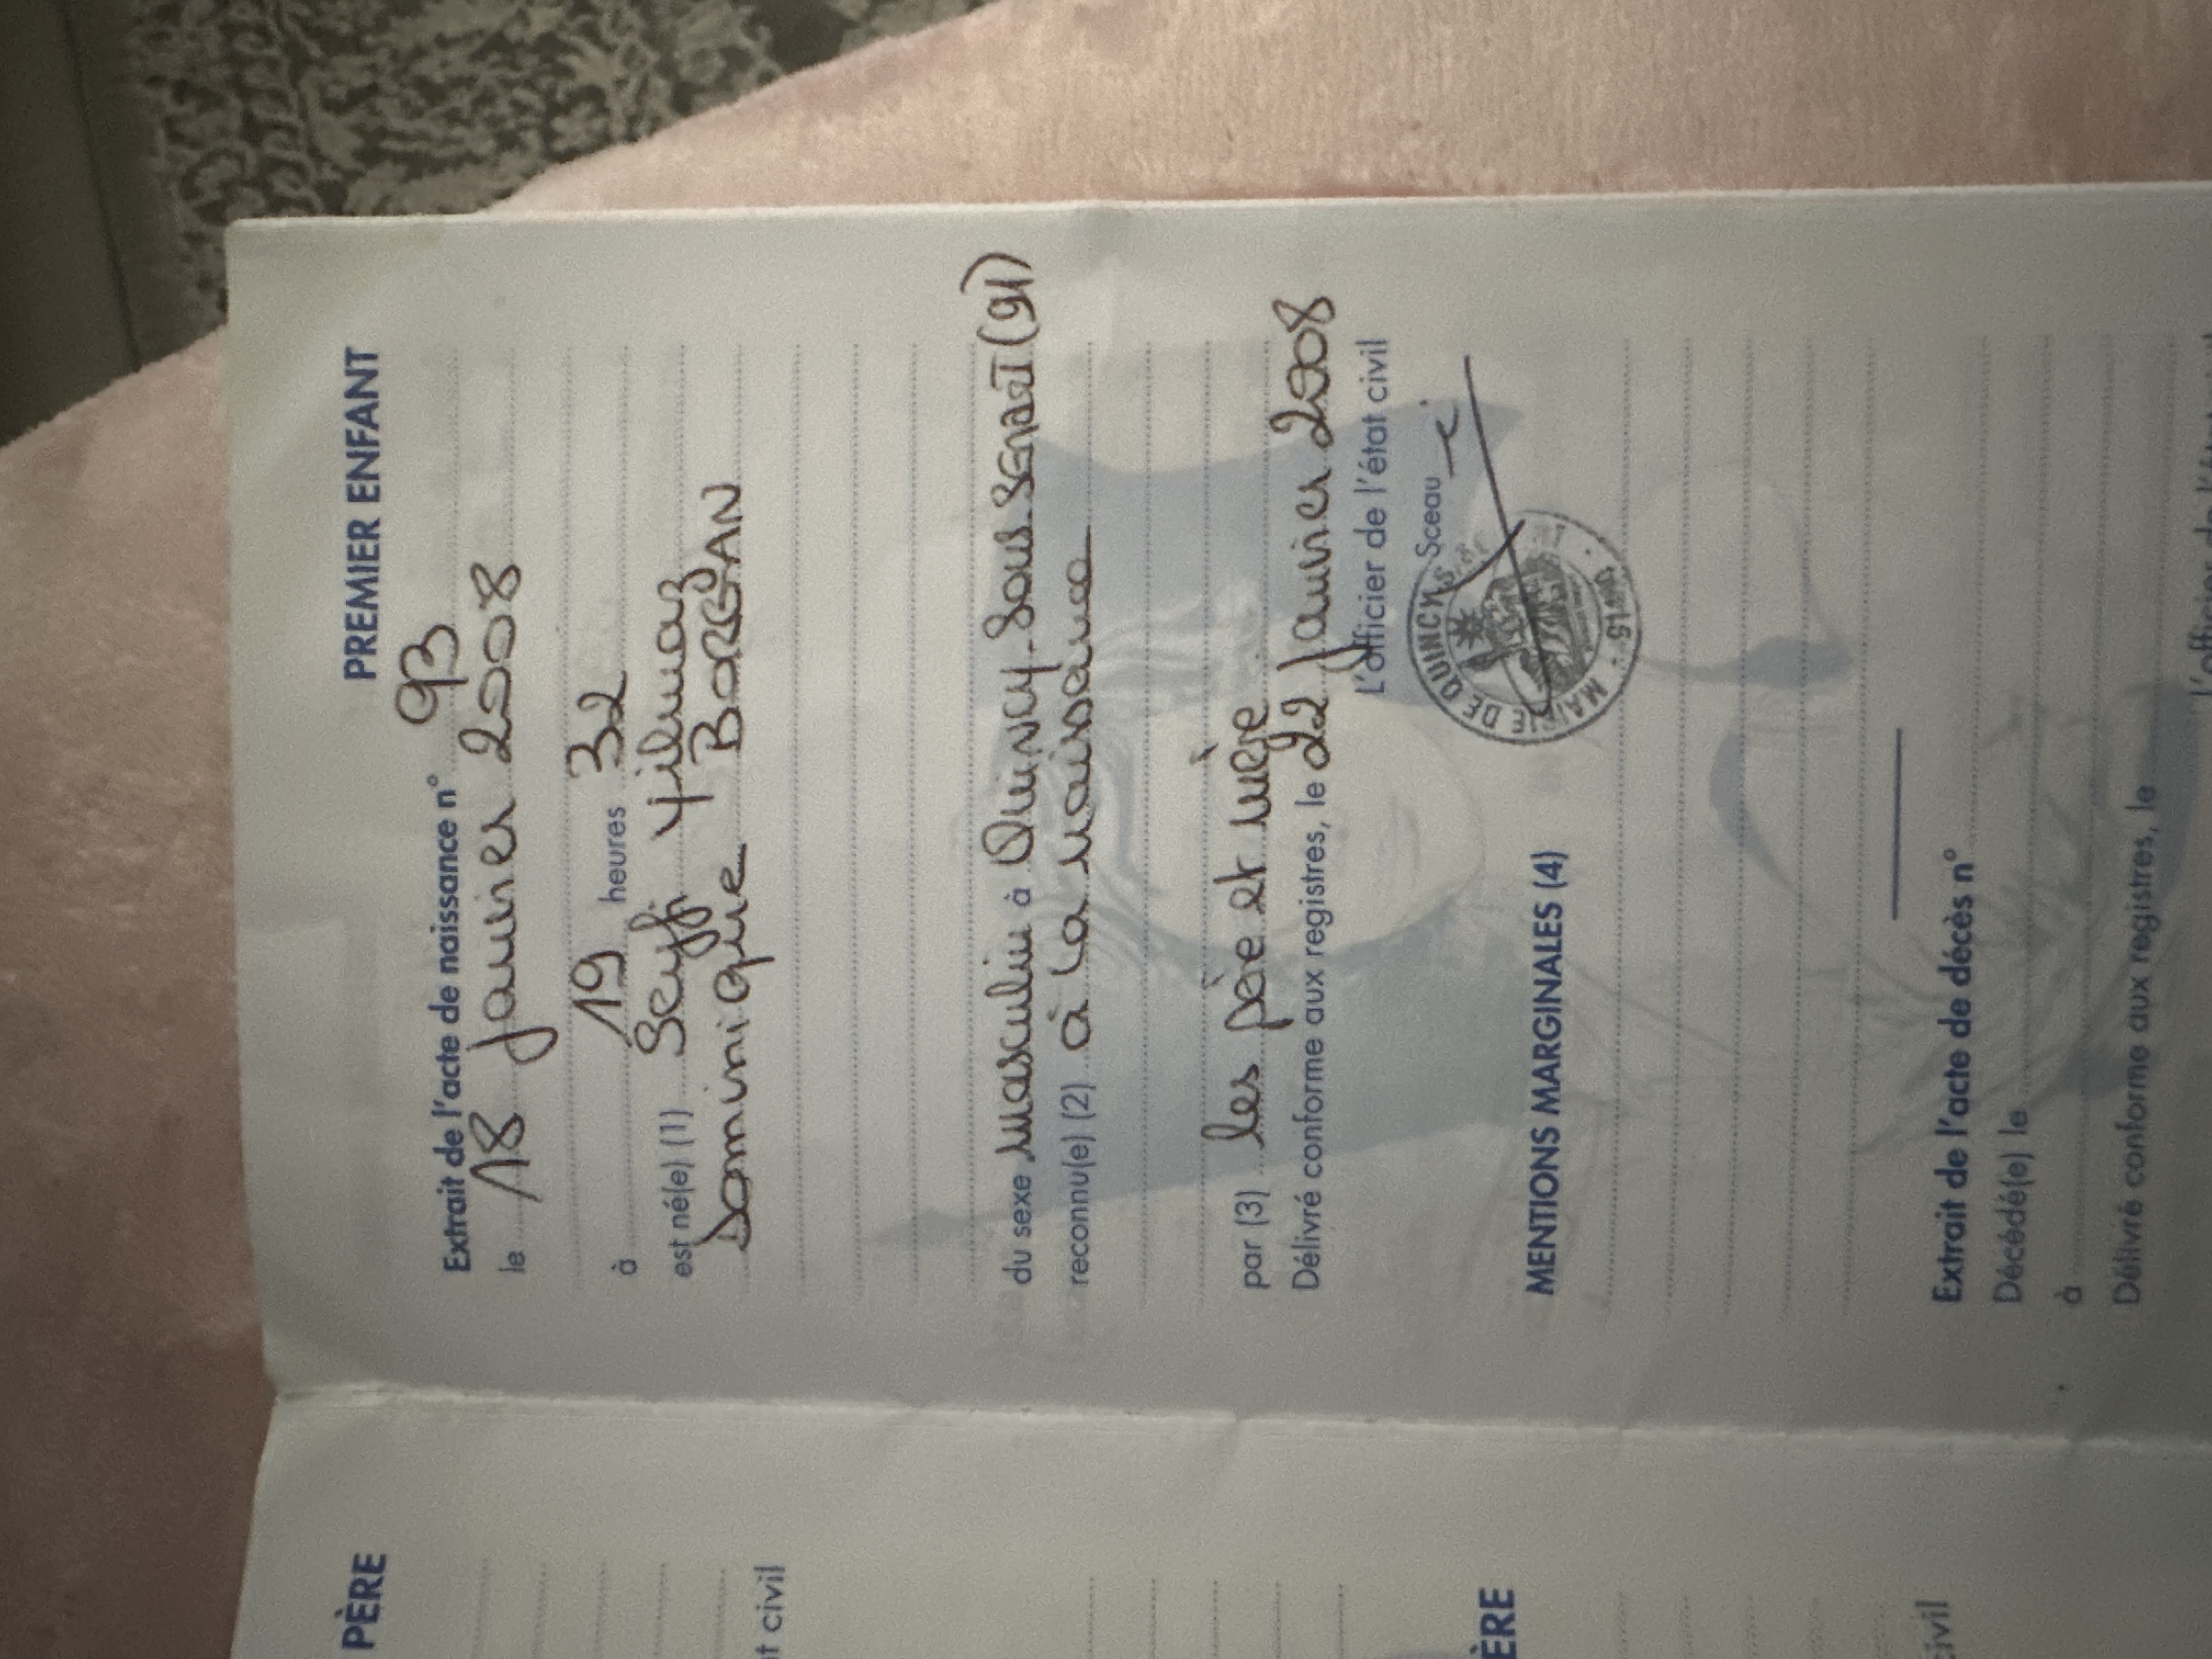 PREMIER ENFANT
Extrait de l'acte de naissance n° 93
le 18 janvier 2008
à 19 heures 32
est né(e) (1) Seyfi Yilmaz
Dominique BORGAN
du sexe masculin à Quincy-Sous-Sénart (91)
reconnu(e) (2) à la naissance
par (3) les père et mère
Délivré conforme aux registres, le 22 janvier 2008
L'officier de l'état civil
Sceau
MAIRIE DE QUINCY S/S
MENTIONS MARGINALES (4)
Extrait de l'acte de décès n°
Décédé(e) le
à
Délivré conforme aux registres, le
PÈRE
t civil
ÈRE
civil